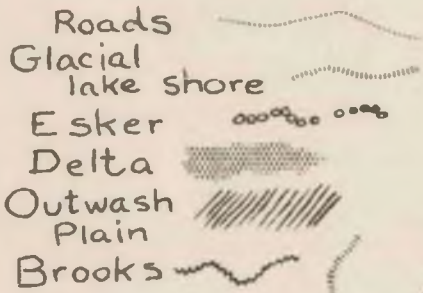 Roads
Glacial
lake shore
Esker
Delta
Outwash
Plain
Brooks